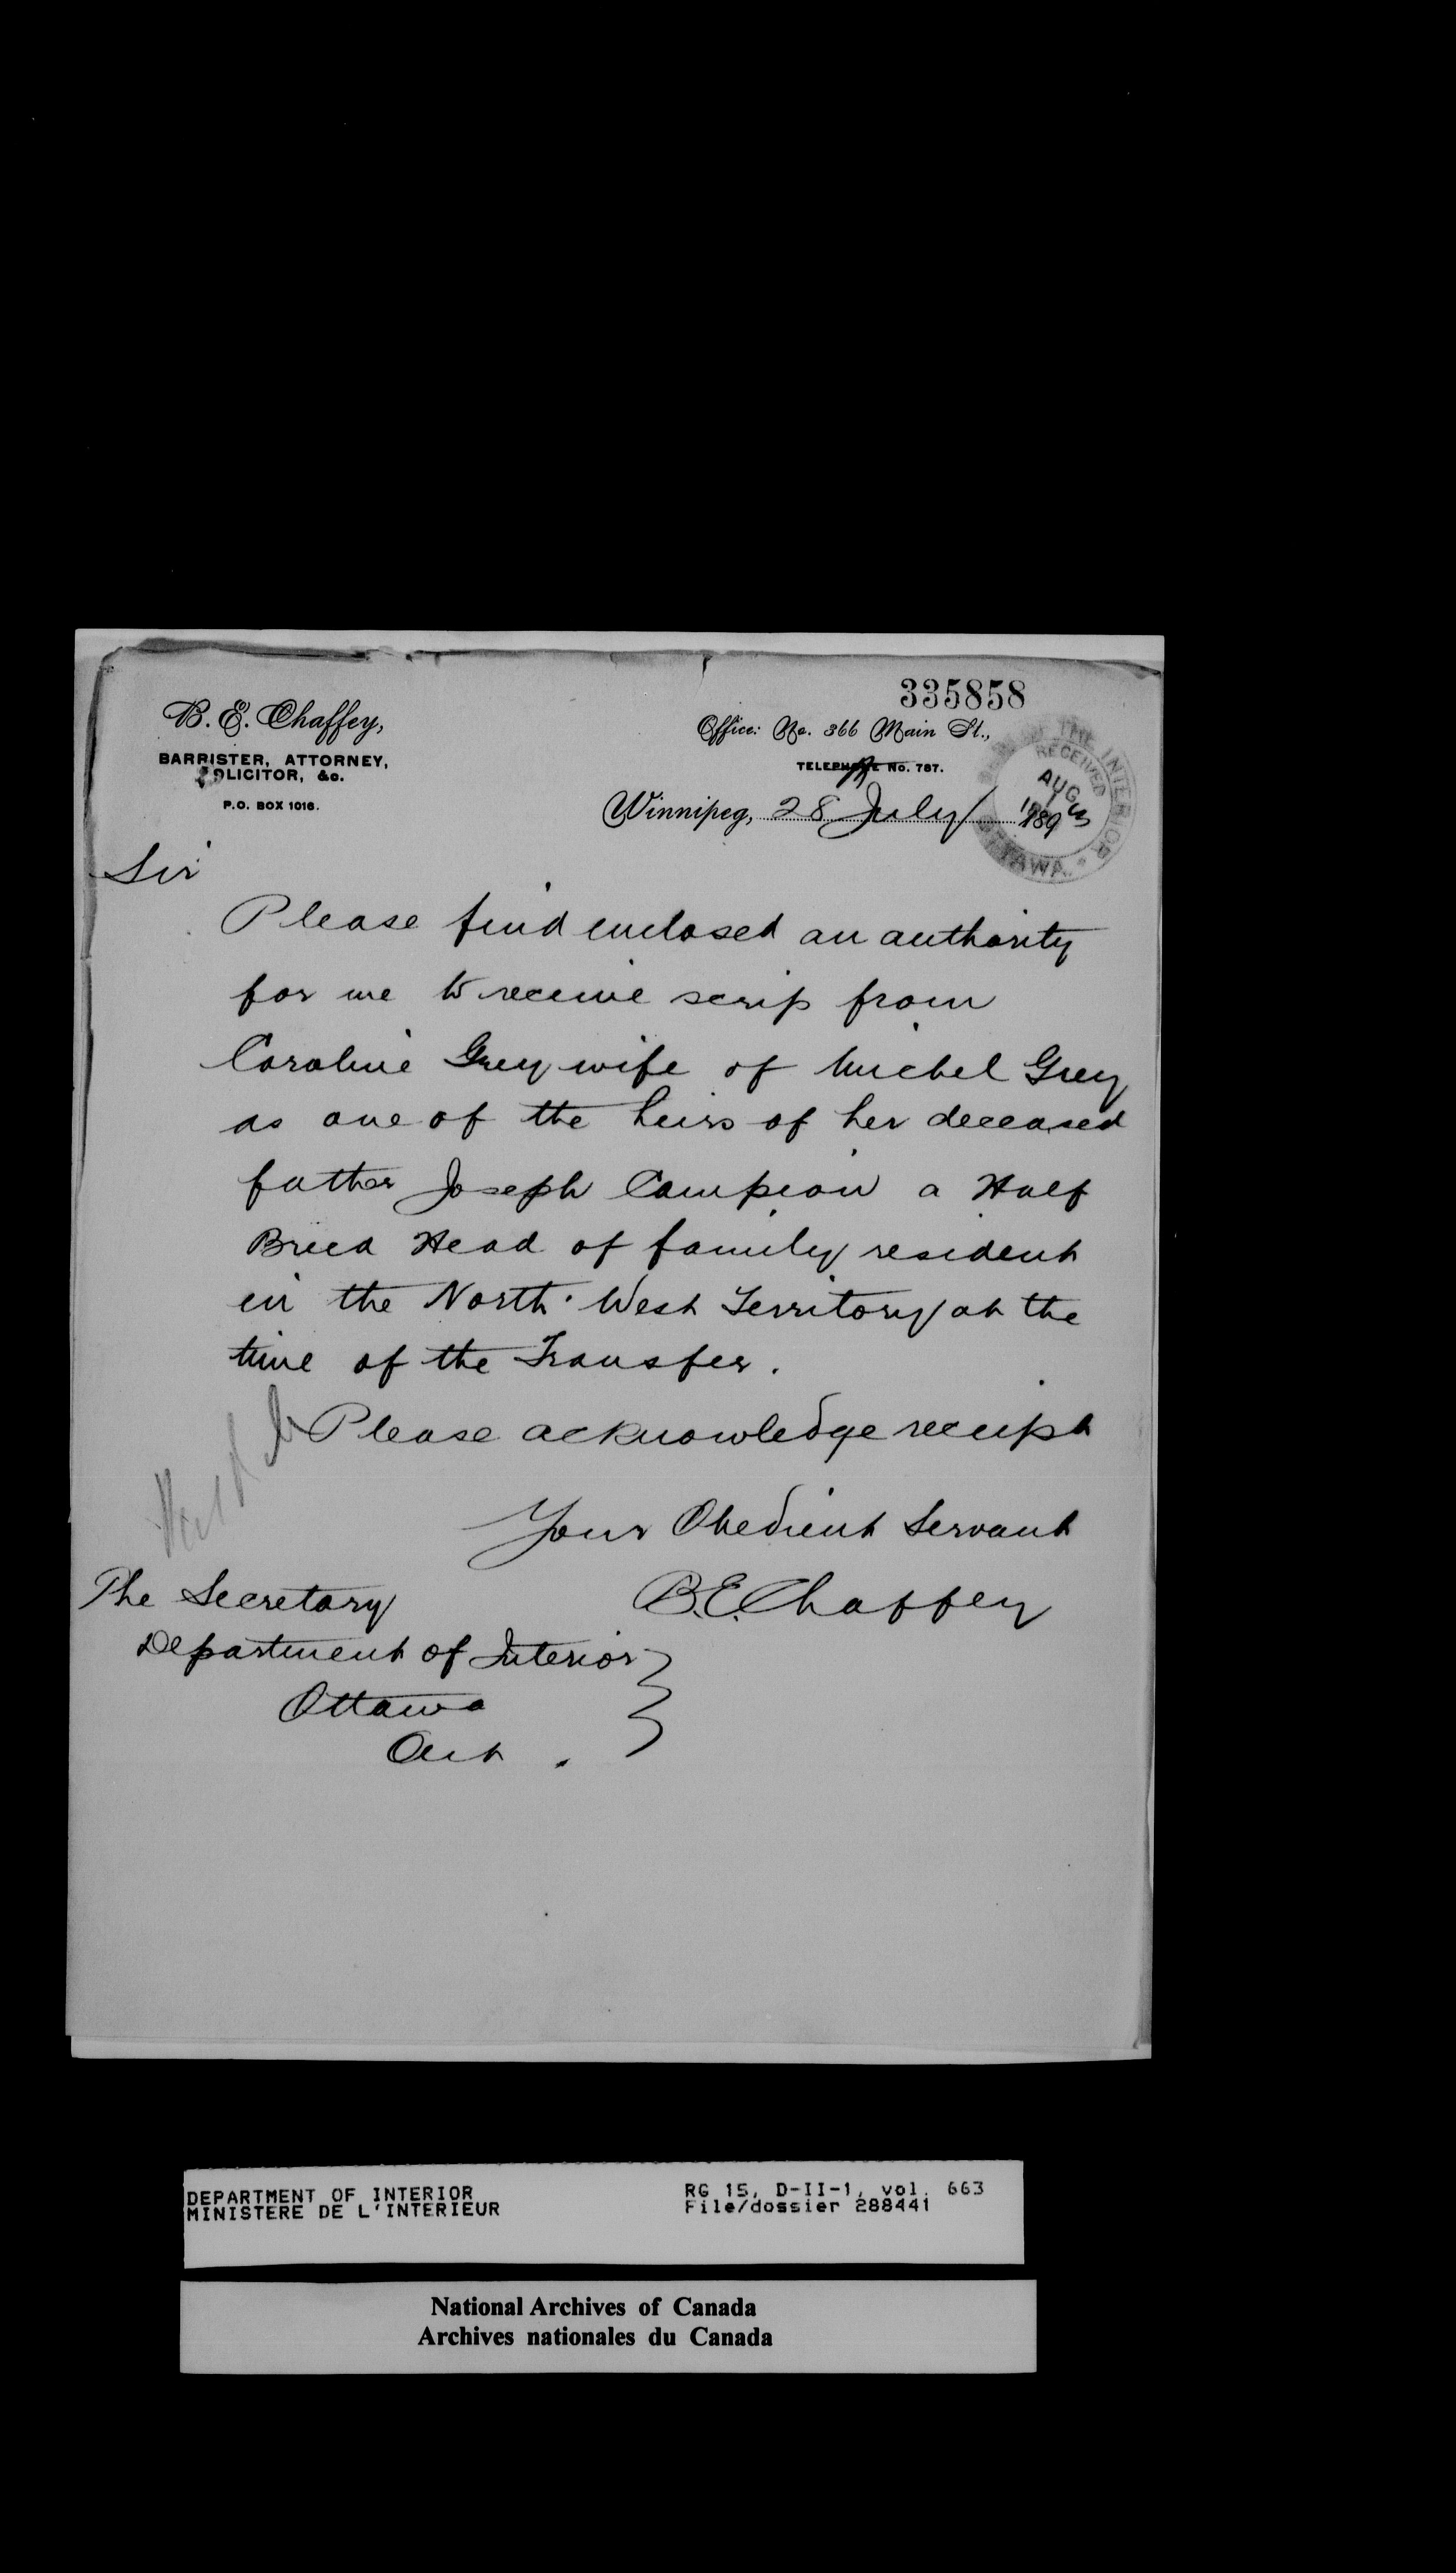 335858
B. E. Chaffey,
BARRISTER, ATTORNEY,
SOLICITOR, &c.
P.O. BOX 1016.
Office: No. 366 Main St.,
TELEPHONE No. 787.
Winnipeg, 28 July 189
THE INTERIOR
RECEIVED
AUG
OTTAWA.
Sir
Please find enclosed an authority
for me to receive scrip from
Caroline Grey wife of Michel Grey
as one of the heirs of her deceased
father Joseph Campion a Half
Breed Head of family resident
in the North West Territory at the
time of the Transfer.
Please acknowledge receipt
Your Obedient Servant
B.E. Chaffey
The Secretary
Department of Interior
Ottawa
Ont.
DEPARTMENT OF INTERIOR
MINISTERE DE L'INTERIEUR
RG 15, D-II-1, vol. 663
File/dossier 288441
National Archives of Canada
Archives nationales du Canada